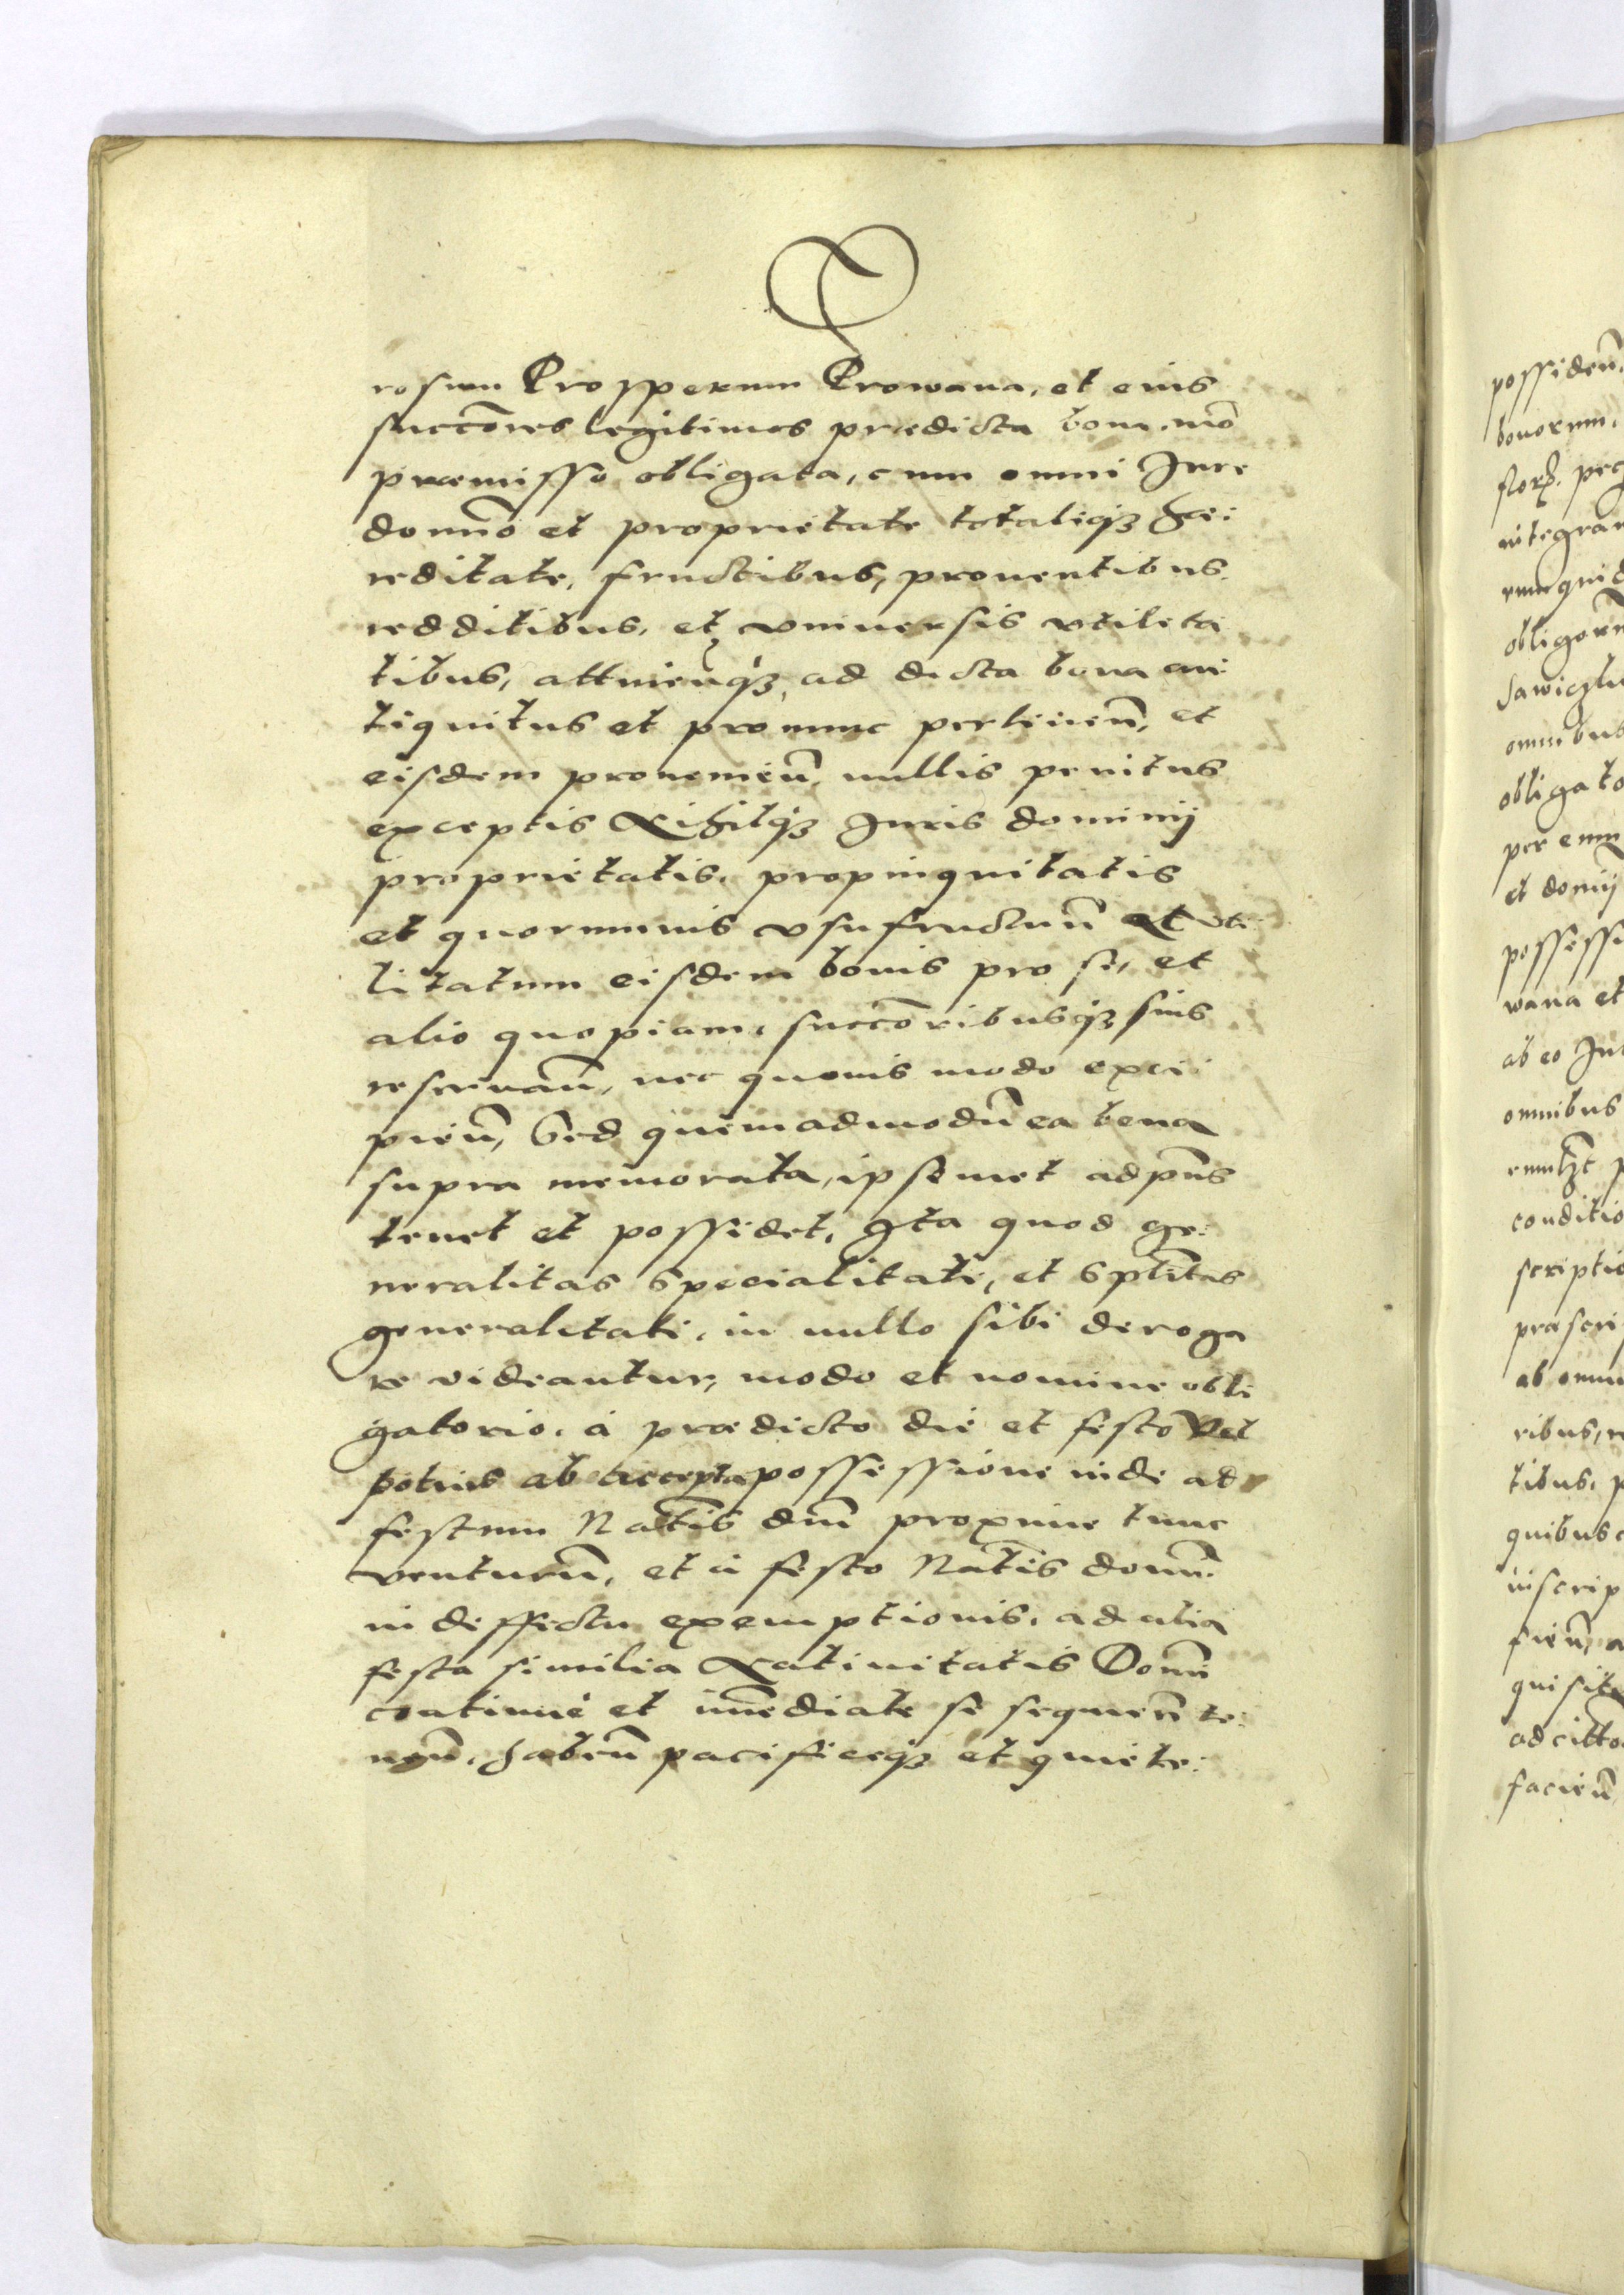 rosum Prosperum Prowana, et eius
succōres legitimos prædicta bona, mō
præmisso obligata, cum omni Iure
domīo et proprietate totaliq₃ hæ:
reditate, fructibus, prouentibus,
redditibus, et vniuersis vtilita
tibus, attineñq₃ ad dicta bona an:
tiquitus et pro nunc pertineñ, et
eisdem proueniеñ, nullis penitus
exceptis Nihilq₃ Iuris dominij
proprietatis, propinquitatis
et quorumuis vsufructuū et vti
litatum eisdem bonis pro se, et
alio quopiam, succōribusq₃ suis
reseruañ, nec quouis modo exci:
pieñ, Sed quemadmodū ea bona
supra memorata, ipsemet ad pñs
tenet et possidet, Ita quod ge:
neralitas specialitati, et sp̃litas
generalitati, in nullo sibi deroga
re videantur, modo et nomine obli
gatorio, à prædicto die et festo vel
potius ab accepta possessione inde ad
festum Natīs dñi proxime tunc
venturū, et à festo Natīs domī
in deffectu exemptionis, ad alia
festa similia Natiuitatis Domī
continuè et im̄ediate se sequeñ te:
neñ, habeñ pacificeq₃ et quiete:
possideñ,
bonorum,
florꝝ. pec
integram
rumquid
obligaru
Sawiczki
omnibus
obligato
per eum
et domij
possessi
wana et
ab eo Iu
omnibus
conditio
scriptio
præscri
ab omni
ribus, r
tibus, p
quibus
inscrip
fieñ, a
quisit
ad citto
facieñ